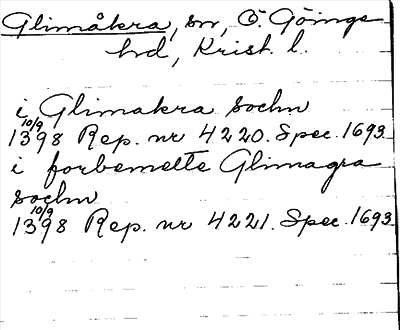 Glimåkra, sn, Ö. Göinge
hd, Krist. l.
i Glimakra sochn
10/9
1398 Rep. nr 4220. Spec. 1693
i forbemelte Glimagra
sochn
10/9
1398 Rep. nr 4221. Spec. 1693